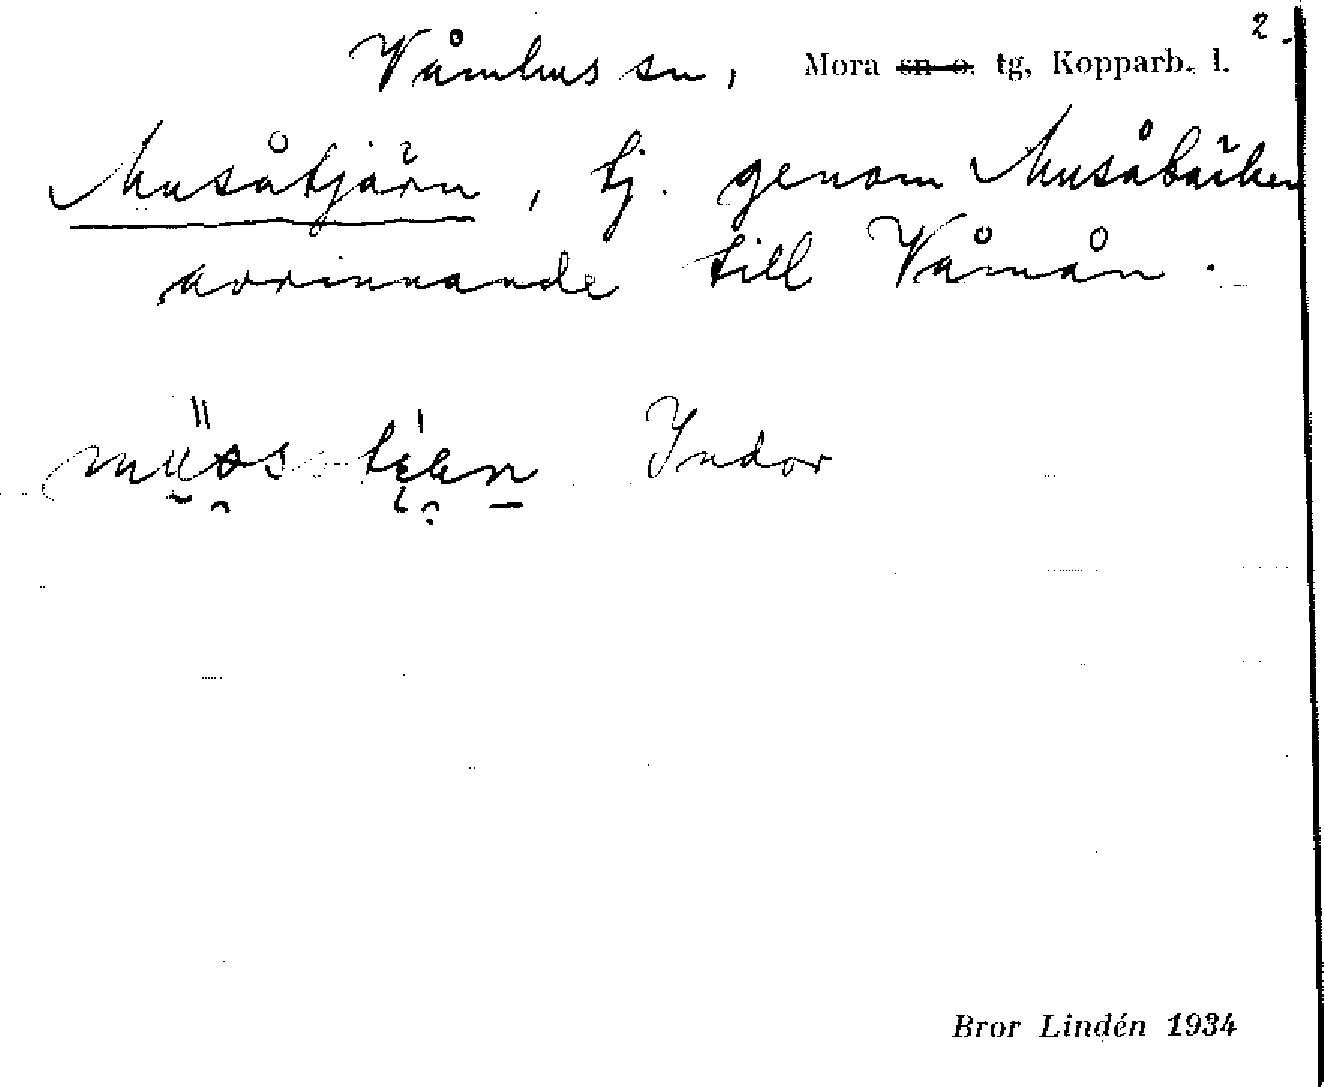 2.
Våmhus sn, Mora sn o. tg, Kopparb. l.
Musåtjärn, tj. genom Musåbäcken
avrinnande till Våmån.
Indor
Bror Lindén 1934